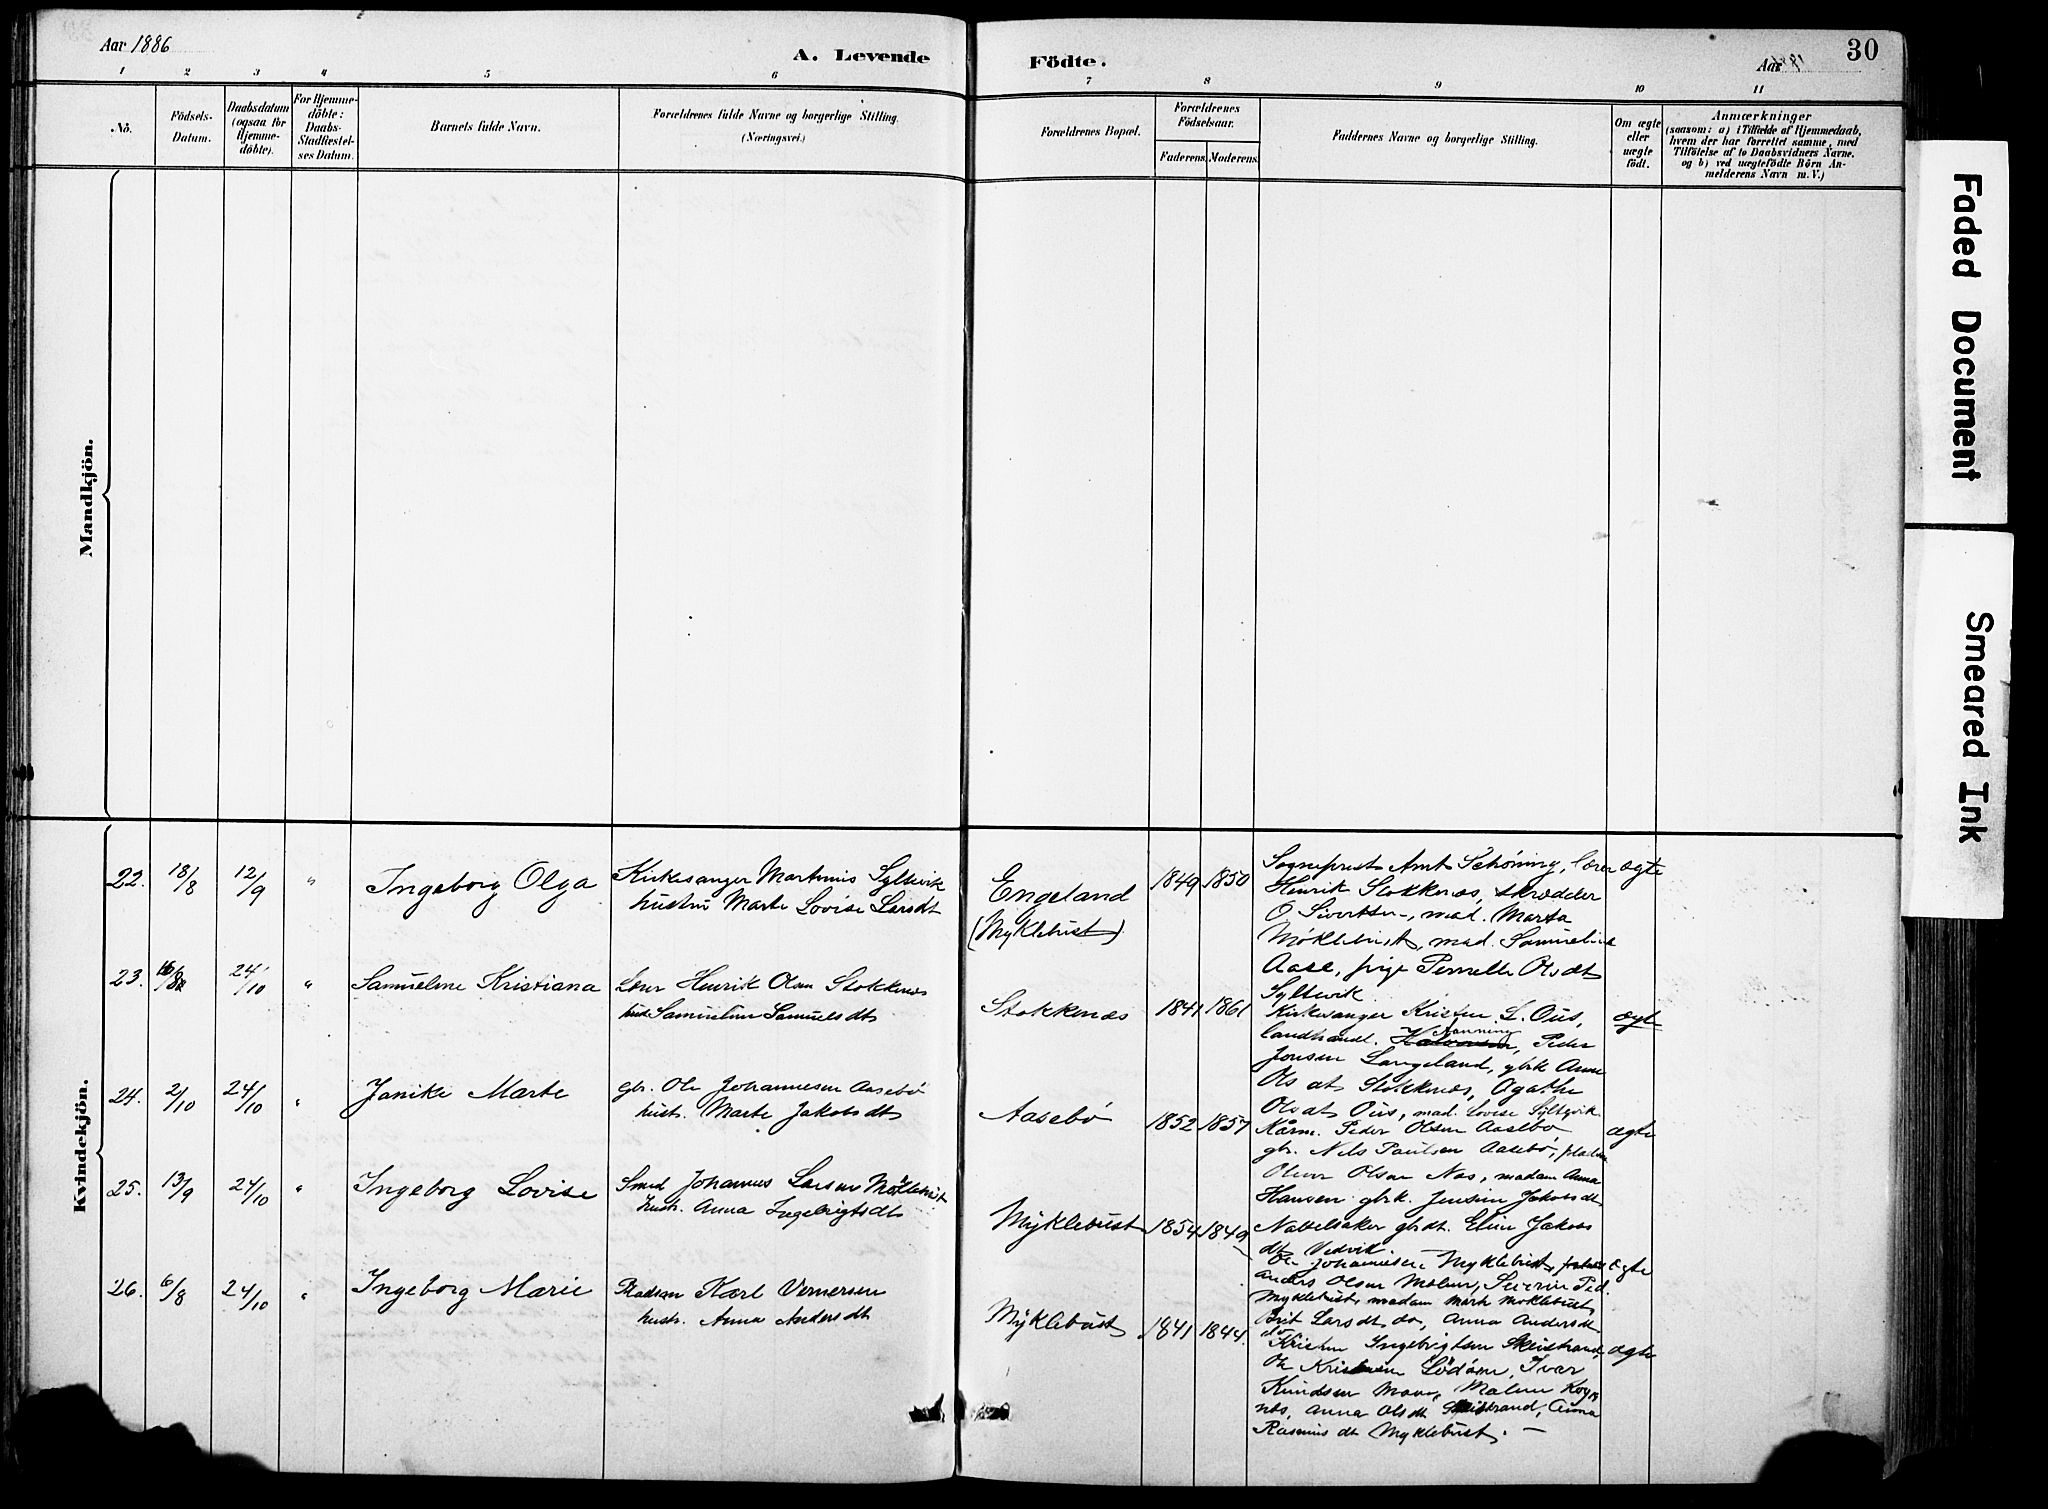 Aar 1886
A. Levende Födte.
Aar
30
1 2 3 4 5 6 7 8 9 10 11
No.
Födsels-
Datum.
Daabsdatum
(ogsaa for
Hjemme-
döbte).
For Hjemme-
döbte:
Daabs-
Stadfæstel-
ses Datum.
Barnets fulde Navn.
Forældrenes fulde Navne og borgerlige Stilling.
(Næringsvei.)
Forældrenes Bopæl.
Forældrenes
Födselsaar.
Faderens. Moderens.
Faddernes Navne og borgerlige Stilling.
Om ægte
eller
uægte
födt.
Anmærkninger
(saasom: a) i Tilfælde af Hjemmedaab,
hvem der har forrettet samme, med
Tilföielse af to Daabsvidners Navne.
og b) ved uægtefödte Börn An-
melderens Navn m. V.)
Mandkjön.
Kvindekjön.
22. 18/8 12/9 " Ingeborg Olga
Kirkesanger Martinus Syltevik
hustru Marte Lovise Larsdt
Engeland
(Myklebust)
1849 1850
Sogneprest Arnt Schöning, lærer
Henrik Stokkenæs, skrædder
O Sivertsen, mad. Marta
Möklebust, mad. Samueline
Aase, pige Pernelle Olsdt
Syltevik.
ægte
23. 24/10 " Samueline Kristiana
Lærer Henrik Olsen Stokkenæs
hust. Samueline Samuelsdt
Stokkenæs
1841 1861
Kirkesanger Kristen L. Ous,
landhandl. Nanning, Peder
Jonsen Langeland, gbrk Anne
Olsdt Stokkenæs, Agathe
Olsdt Ous, mad. Lovise Syltevik
ægte
24. 2/10 24/10 " Janike Marte
gbr. Ole Johannesen Aasebö
hust. Marte Jakobsdt
Aasebö
1852 1857
Peder Olsen Aasebö
gbr. Nels Paulsen Aasebö,
Oliver Olsen Nos, madam Anna
Hansen gbrk. Jensine Jakobsdt
Nabelsaker gbdt. Eline Jakobs
dt Vedvik.
ægte
25. 13/9 24/10 " Ingeborg Lovise
Smed Johannes Larsen Möklebust
hust. Anna Ingebrigtsdt
Myklebust
1854 1849
Ole Johannesen Myklebust,
Anders Olsen Molun, Severin Ped.
Myklebust, madam Marte Moklebust
Brit Larsdt do, Anna Andersdt
do
ægte
26. 6/8 24/10 " Ingeborg Marie
Pladsm Karl Vernersen
hustr. Anna Andersdt
Myklebust
1841 1844.
Kristen Ingebrigtsen
Ole Kristensen Lödöen, Ivar
Knudsen Moen, Malene
nes, Anna Olsdt, Anna
Rasmusdt Myklebust. —
ægte
Faded Document
Smeared Ink